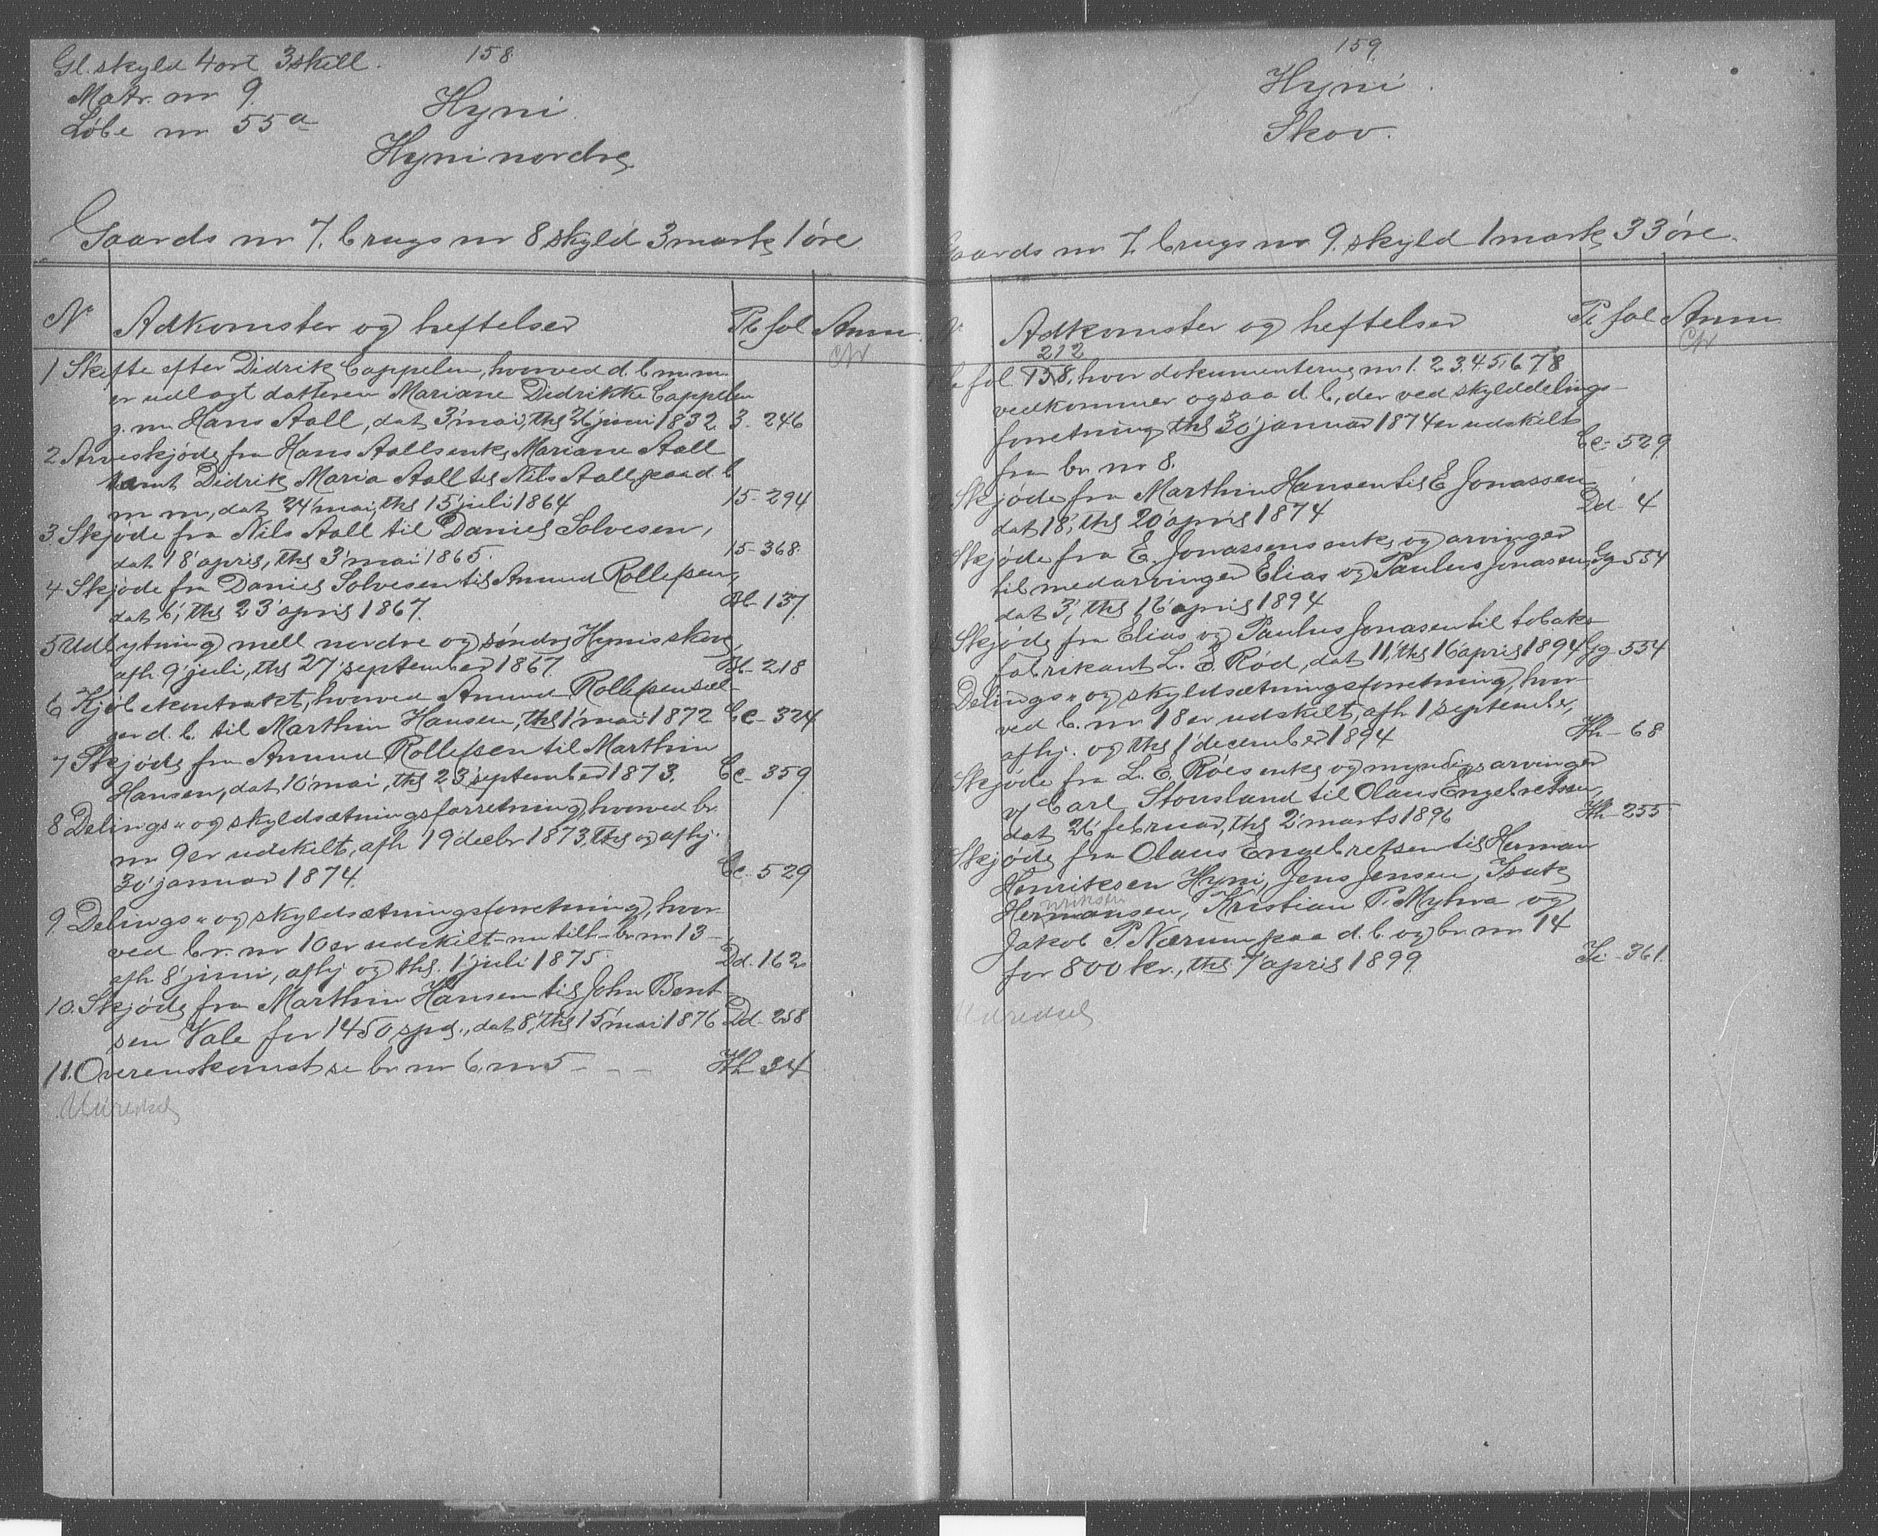 158.
Gl. skyld 4 ort 3 skill.
Matr. nr 9.
Løbe nr 55a
Hyni.
Hyni nordre
Gaards nr 7, brugs nr 8 skyld 3 mark 1 øre
Nr Adkomster og heftelser Pb fol Anm.
1 Skifte efter Didrik Cappelen, hvorved d. b. m. m.
er udlagt datteren Mariane Didrikke Cappelen
g. m. Hans Aall, dat 3' mai, ths 26' juni 1832 3-246
2 Arveskjøde fra Hans Aalls enke Mariane Aall
samt Didrik Maria Aall til Nils Aall paa d. b
m m, dat 24' mai, ths 15' juli 1864 15-294
3. Skjøde fra Nils Aall til Daniel Solvesen,
dat 18' april, ths 3' mai 1865. 15-368.
4 Skjøde fra Daniel Solvesen til Amund Rollefsen,
dat 6', ths 23' april 1867. Bb-137.
5 Udbytning mell nordre og søndre Hynis skov,
afh 9' juli, ths 27' september 1867. Bb-218
6 Kjøbekontrakt, hvorved Amund Rollefsen sæl-
ger d. b. til Marthin Hansen, ths 1' mai 1872 Cc-324
7 Skjøde fra Amund Rollefsen til Marthin
Hansen, dat 10' mai, ths 23' september 1873. Cc-359.
8 Delings- og skyldsætningsforretning, hvorved br.
nr 9 er udskilt, afh 19' decbr 1873, ths og afhj.
30' januar 1874. Cc-529
9. Delings- og skyldsætningsforretning, hvor-
ved br. nr 10 er udskilt - nu till - br nr 13 -
afh 8' juni, afhj og ths. 1' juli 1875. Dd-162
10. Skjøde fra Marthin Hansen til John Bent-
sen Vale for 1450 spd., dat 8', ths 15' mai 1876 Dd-258
11. Overenskomst se br nr 6 nr 5 - - - Hh 34
159.
Hyni.
Skov.
Gaards nr 7, brugs nr 9. skyld 1 mark 33 øre.
Nr Adkomster og heftelser Pb fol Anm
212
fol 158, hvor dokumenterne nr 1. 2. 3. 4. 5. 6. 7. 8
vedkommer ogsaa d b, der ved skylddelings-
forretning ths 30' januar 1874 er udskilt
fra br. nr 8. Cc-529.
Skjøde fra Marthin Hansen til E Jonassen
dat 18', ths 20' april 1874 Dd-4
Skjøde fra E. Jonassens enke og arvinger
til medarvinger Elias og Paulus Jonasen, Gg-554
dat 3', ths 16' april 1894
Skjøde fra Elias og Paulus Jonasen til tobaks-
fabrikant L. E Rød, dat 11', ths 16' april 1894 Gg-554
Delings- og skyldsætningsforretning, hvor-
ved b. nr 18 er udskilt, afh 1' september,
afhj. og ths 1' december 1894 Hh-68
Skjøde fra L. E. Røds enke og myndige arvinger
v/ Carl Stousland til Olaus Engebretsen,
dat 26' februar, ths 2' marts 1896 Hh-255
Skjøde fra Olaus Engebretsen til Herman
Henriksen Hyni, Jens Jensen, Isak
Hermansen, Kristian P. Myhra og
Jakob P Nærum paa d. b. og br. nr 14
for 800 kr., ths 7' april 1899. Ii-361